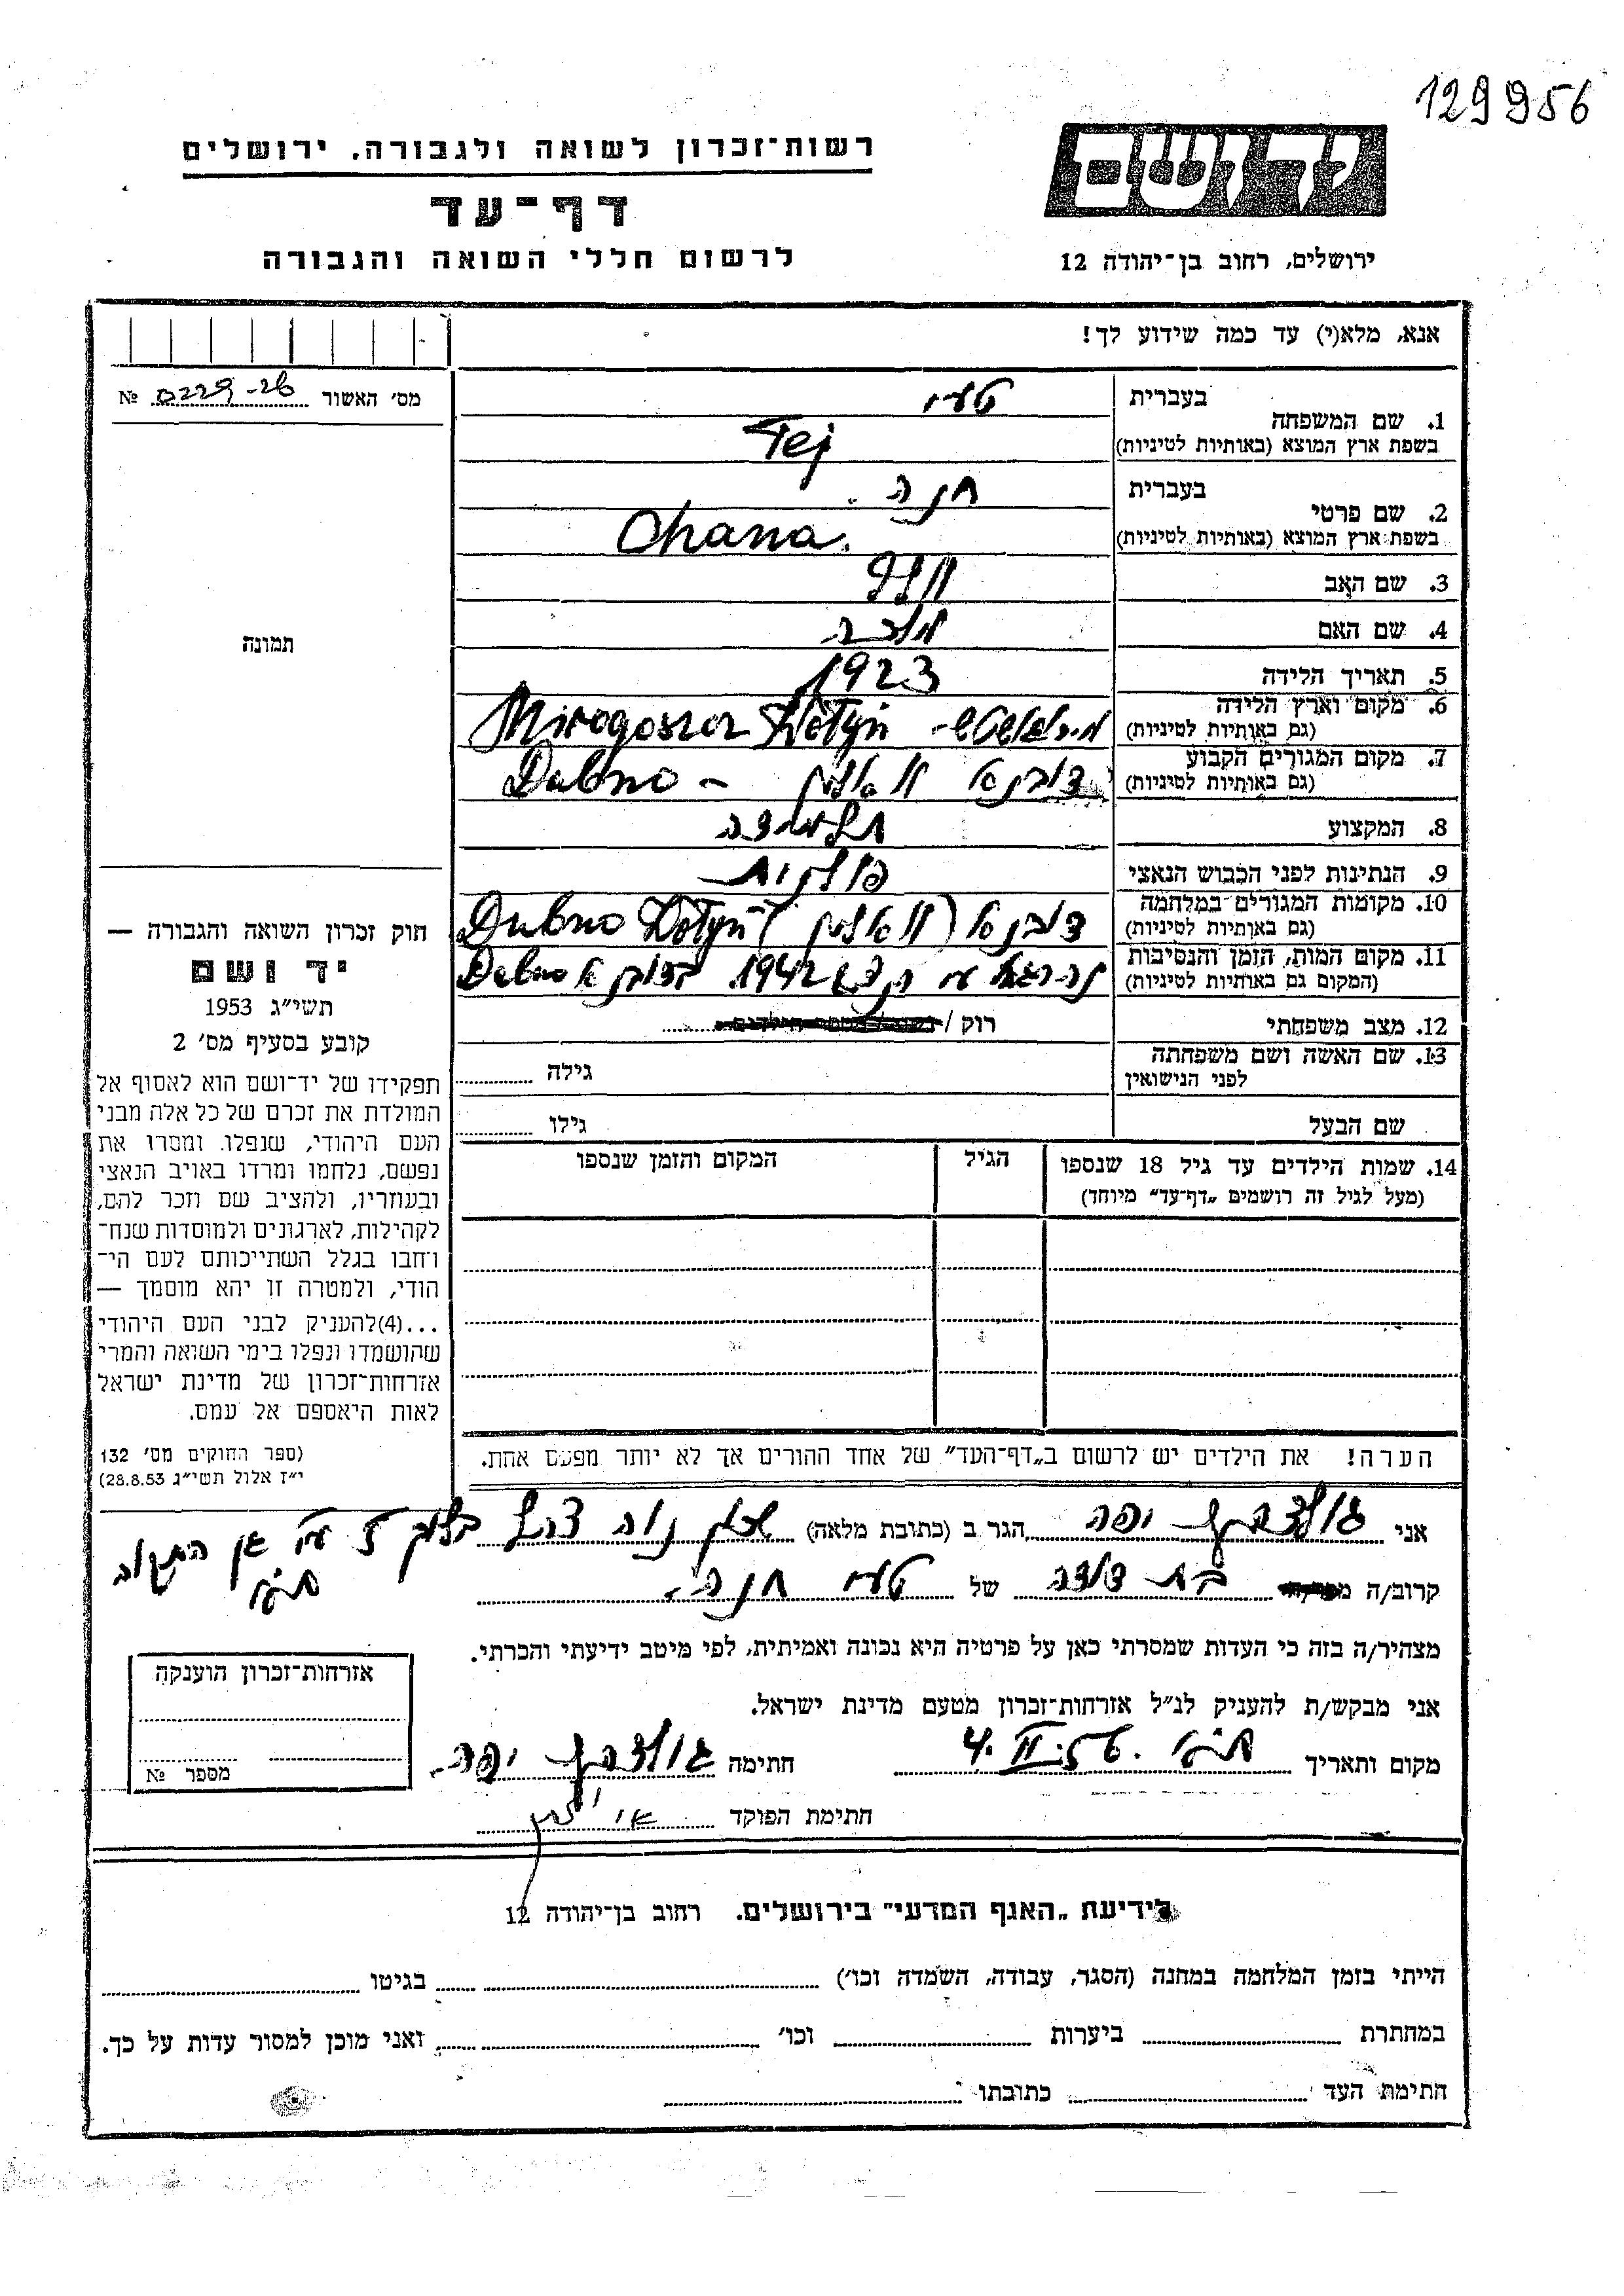 129956
יד ושם
רשות־זכרון לשואה ולגבורה, ירושלים
דף־עד
לרשום חללי השואה והגבורה
ירושלים, רחוב בן־יהודה 12
אנא, מלא(י) עד כמה שידוע לך!
מס׳ האשור № 0229-26
1. שם המשפחה
בעברית טעי
בשפת ארץ המוצא (באותיות לטיניות) Tej
2. שם פרטי
בעברית חנה.
בשפת ארץ המוצא (באותיות לטיניות) Chana.
3. שם האב
4. שם האם
5. תאריך הלידה 1923
6. מקום וארץ הלידה
(גם באותיות לטיניות) Wołyń
7. מקום המגורים הקבוע דובנא וואלין – Dubno
(גם באותיות לטיניות)
8. המקצוע תלמידה
9. הנתינות לפני הכבוש הנאצי פולנית
10. מקומות המגורים במלחמה דובנא (וואלין) Dubno Wołyń
(גם באותיות לטיניות)
11. מקום המות, הזמן והנסיבות 1942 בדובנא Dubno
(המקום גם באותיות לטיניות)
12. מצב משפחתי רוק /
13. שם האשה ושם משפחתה
לפני הנישואין גילה
שם הבעל גילו
14. שמות הילדים עד גיל 18 שנספו הגיל המקום והזמן שנספו
(מעל לגיל זה רושמים „דף־עד״ מיוחד)
הערה! את הילדים יש לרשום ב„דף־העד״ של אחד ההורים אך לא יותר מפעם אחת.
תמונה
חוק זכרון השואה והגבורה —
יד ושם
תשי״ג 1953
קובע בסעיף מס׳ 2
תפקידו של יד־ושם הוא לאסוף אל
המולדת את זכרם של כל אלה מבני
העם היהודי, שנפלו. ומסרו את
נפשם, נלחמו ומרדו באויב הנאצי
ובעוזריו, ולהציב שם וזכר להם,
לקהילות, לארגונים ולמוסדות שנח־
רבו בגלל השתייכותם לעם הי־
הודי, ולמטרה זו יהא מוסמך —
...(4)להעניק לבני העם היהודי
שהושמדו ונפלו בימי השואה והמרי
אזרחות־זכרון של מדינת ישראל
לאות היאספם אל עמם.
(ספר החוקים מס׳ 132
י״ז אלול תשי״ג 28.8.53)
אני יפה הגר ב (כתובת מלאה)
קרוב/ה בת דודה של טעי חנה.
מצהיר/ה בזה כי העדות שמסרתי כאן על פרטיה היא נכונה ואמיתית, לפי מיטב ידיעתי והכרתי.
אני מבקש/ת להעניק לנ״ל אזרחות־זכרון מטעם מדינת ישראל.
מקום ותאריך חתימה יפה.
חתימת הפוקד
אזרחות־זכרון הוענקה
מספר №
לידיעת „האגף המדעי״ בירושלים. רחוב בן־יהודה 12
הייתי בזמן המלחמה במחנה (הסגר, עבודה, השמדה וכו׳) בגיטו
במחתרת ביערות וכו׳ ואני מוכן למסור עדות על כך.
חתימת העד כתובתו